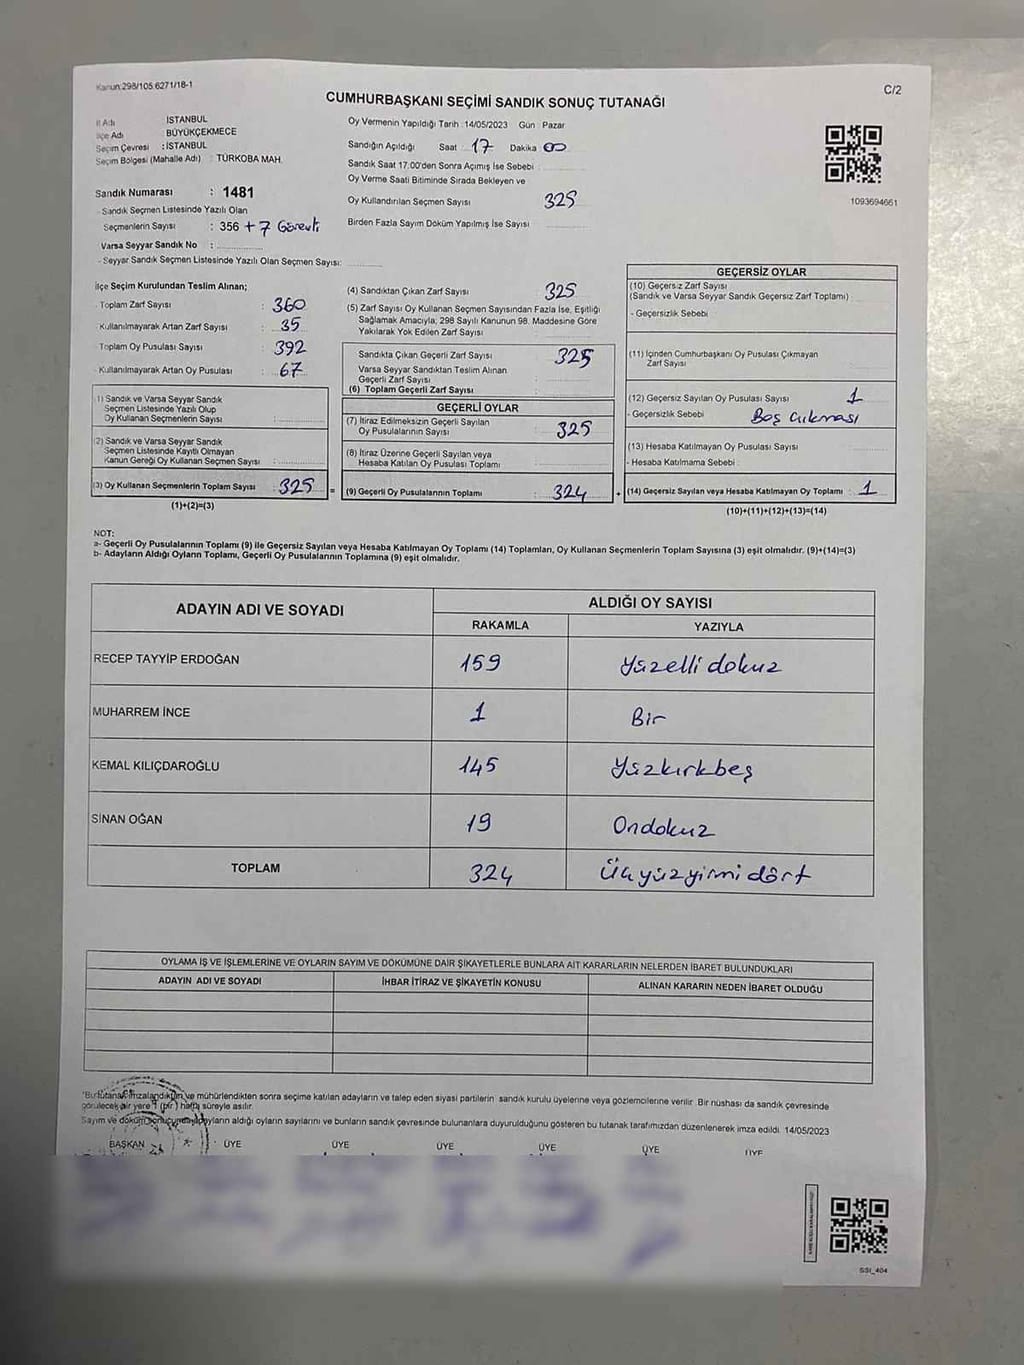 Kanun:298/105 6271/18-1
C/2
CUMHURBAŞKANI SEÇİMİ SANDIK SONUÇ TUTANAĞI
İl Adı İSTANBUL
İlçe Adı BÜYÜKÇEKMECE
Seçim Çevresi : İSTANBUL
Seçim Bölgesi (Mahalle Adı) : TÜRKOBA MAH.
Sandık Numarası : 1481
- Sandık Seçmen Listesinde Yazılı Olan
Seçmenlerin Sayısı : 356 + 7 Görevli
Varsa Seyyar Sandık No :
- Seyyar Sandık Seçmen Listesinde Yazılı Olan Seçmen Sayısı:
Oy Vermenin Yapıldığı Tarih : 14/05/2023 Gün : Pazar
Sandığın Açıldığı Saat 17 Dakika 00
Sandık Saat 17.00'den Sonra Açımış İse Sebebi
Oy Verme Saati Bitiminde Sırada Bekleyen ve
Oy Kullandırılan Seçmen Sayısı 325
Birden Fazla Sayım Döküm Yapılmış İse Sayısı
1093694661
İlçe Seçim Kurulundan Teslim Alınan;
- Toplam Zarf Sayısı : 360
- Kullanılmayarak Artan Zarf Sayısı : 35
- Toplam Oy Pusulası Sayısı : 392
- Kullanılmayarak Artan Oy Pusulası : 67
(1) Sandık ve Varsa Seyyar Sandık
Seçmen Listesinde Yazılı Olup
Oy Kullanan Seçmenlerin Sayısı
(2) Sandık ve Varsa Seyyar Sandık
Seçmen Listesinde Kayıtlı Olmayan
Kanun Gereği Oy Kullanan Seçmen Sayısı
(3) Oy Kullanan Seçmenlerin Toplam Sayısı : 325 =
(1)+(2)=(3)
(4) Sandıktan Çıkan Zarf Sayısı 325
(5) Zarf Sayısı Oy Kullanan Seçmen Sayısından Fazla İse, Eşitliği
Sağlamak Amacıyla, 298 Sayılı Kanunun 98. Maddesine Göre
Yakılarak Yok Edilen Zarf Sayısı
Sandıkta Çıkan Geçerli Zarf Sayısı 325
Varsa Seyyar Sandıktan Teslim Alınan
Geçerli Zarf Sayısı
(6) Toplam Geçerli Zarf Sayısı
GEÇERLİ OYLAR
(7) İtiraz Edilmeksizin Geçerli Sayılan
Oy Pusulalarının Sayısı 325
(8) İtiraz Üzerine Geçerli Sayılan veya
Hesaba Katılan Oy Pusulası Toplamı
(9) Geçerli Oy Pusulalarının Toplamı 324 +
GEÇERSİZ OYLAR
(10) Geçersiz Zarf Sayısı
(Sandık ve Varsa Seyyar Sandık Geçersiz Zarf Toplamı)
- Geçersizlik Sebebi
(11) İçinden Cumhurbaşkanı Oy Pusulası Çıkmayan
Zarf Sayısı
(12) Geçersiz Sayılan Oy Pusulası Sayısı 1
- Geçersizlik Sebebi Boş çıkması
(13) Hesaba Katılmayan Oy Pusulası Sayısı
- Hesaba Katılmama Sebebi
(14) Geçersiz Sayılan veya Hesaba Katılmayan Oy Toplamı : 1
(10)+(11)+(12)+(13)=(14)
NOT:
a- Geçerli Oy Pusulalarının Toplamı (9) ile Geçersiz Sayılan veya Hesaba Katılmayan Oy Toplamı (14) Toplamları, Oy Kullanan Seçmenlerin Toplam Sayısına (3) eşit olmalıdır. (9)+(14)=(3)
b- Adayların Aldığı Oyların Toplamı, Geçerli Oy Pusulalarının Toplamına (9) eşit olmalıdır.
ADAYIN ADI VE SOYADI ALDIĞI OY SAYISI
RAKAMLA YAZIYLA
RECEP TAYYİP ERDOĞAN 159 Yüzelli dokuz
MUHARREM İNCE 1 Bir
KEMAL KILIÇDAROĞLU 145 Yüzkırkbeş
SİNAN OĞAN 19 Ondokuz
TOPLAM 324 Üçyüzyirmi dört
OYLAMA İŞ VE İŞLEMLERİNE VE OYLARIN SAYIM VE DÖKÜMÜNE DAİR ŞİKAYETLERLE BUNLARA AİT KARARLARIN NELERDEN İBARET BULUNDUKLARI
ADAYIN ADI VE SOYADI İHBAR İTİRAZ VE ŞİKAYETİN KONUSU ALINAN KARARIN NEDEN İBARET OLDUĞU
*Bu tutanak imzalandıktan ve mühürlendikten sonra seçime katılan adayların ve talep eden siyasi partilerin sandık kurulu üyelerine veya gözlemcilerine verilir. Bir nüshası da sandık çevresinde
görülecek bir yere 1 (bir) hafta süreyle asılır.
Sayım ve döküm sonucunda adayların aldığı oyların sayılarını ve bunların sandık çevresinde bulunanlara duyurulduğunu gösteren bu tutanak tarafımızdan düzenlenerek imza edildi. 14/05/2023
BAŞKAN ÜYE ÜYE ÜYE ÜYE ÜYE ÜYE
SSI_404